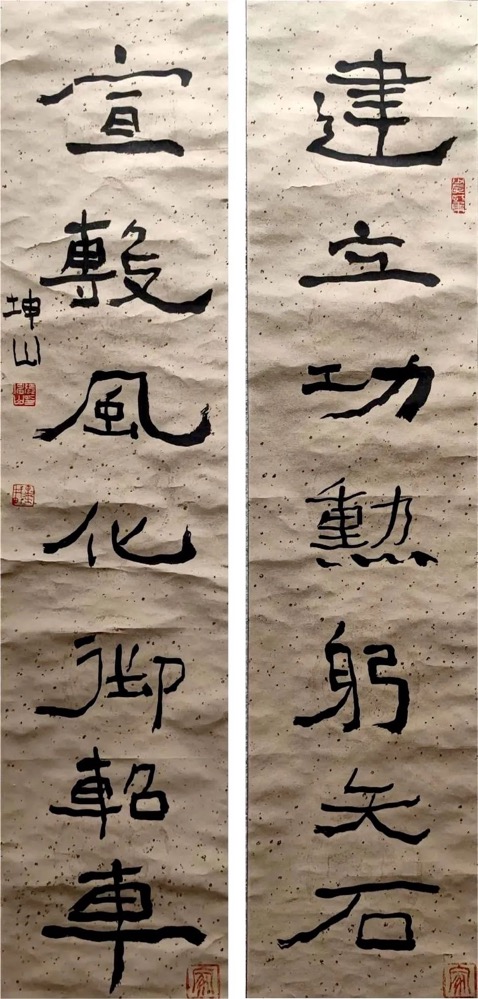 建立功勲躬矢石
宣敷風化御軺車
坤山